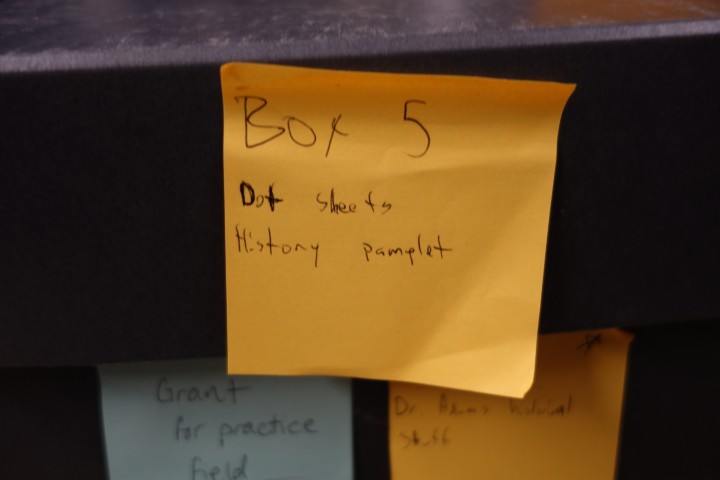 Box 5
Dot sheets
History pamplet
Grant
for practice
field
Dr.
stuff